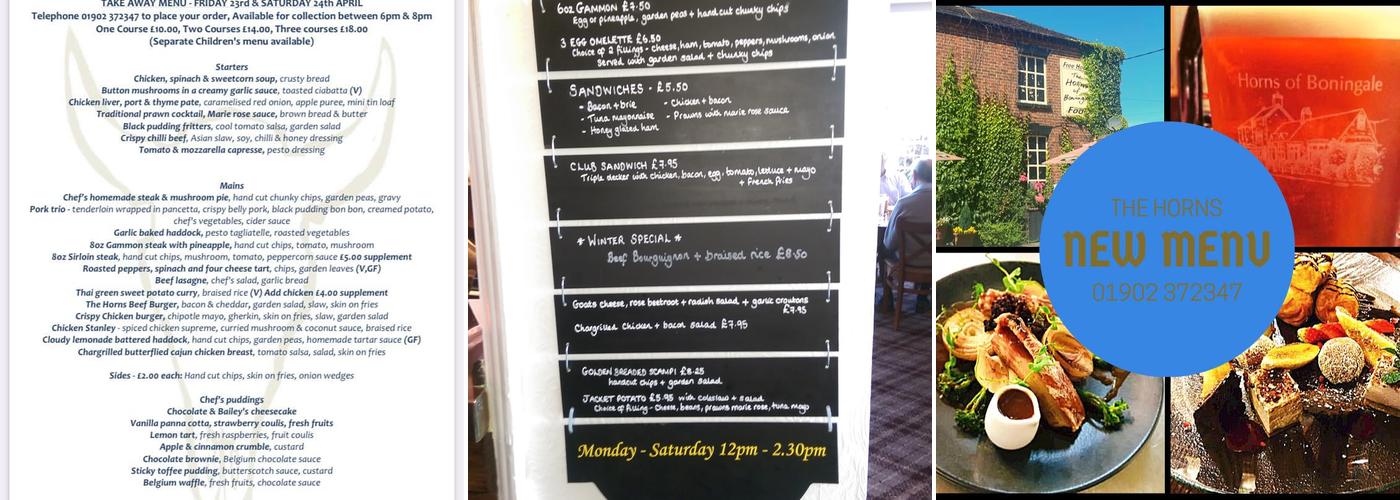 TAKE AWAY MENU - FRIDAY 23rd & SATURDAY 24th APRIL
Telephone 01902 372347 to place your order, Available for collection between 6pm & 8pm
One Course £10.00, Two Courses £14.00, Three courses £18.00
(Separate Children's menu available)
Starters
Chicken, spinach & sweetcorn soup, crusty bread
Button mushrooms in a creamy garlic sauce, toasted ciabatta (V)
Chicken liver, port & thyme pate, caramelised red onion, apple puree, mini tin loaf
Traditional prawn cocktail, Marie rose sauce, brown bread & butter
Black pudding fritters, cool tomato salsa, garden salad
Crispy chilli beef, Asian slaw, soy, chilli & honey dressing
Tomato & mozzarella capresse, pesto dressing
Mains
Chef's homemade steak & mushroom pie, hand cut chunky chips, garden peas, gravy
Pork trio - tenderloin wrapped in pancetta, crispy belly pork, black pudding bon bon, creamed potato,
chef's vegetables, cider sauce
Garlic baked haddock, pesto tagliatelle, roasted vegetables
8oz Gammon steak with pineapple, hand cut chips, tomato, mushroom
8oz Sirloin steak, hand cut chips, mushroom, tomato, peppercorn sauce £5.00 supplement
Roasted peppers, spinach and four cheese tart, chips, garden leaves (V,GF)
Beef lasagne, chef's salad, garlic bread
Thai green sweet potato curry, braised rice (V) Add chicken £4.00 supplement
The Horns Beef Burger, bacon & cheddar, garden salad, slaw, skin on fries
Crispy Chicken burger, chipotle mayo, gherkin, skin on fries, slaw, garden salad
Chicken Stanley - spiced chicken supreme, curried mushroom & coconut sauce, braised rice
Cloudy lemonade battered haddock, hand cut chips, garden peas, homemade tartar sauce (GF)
Chargrilled butterflied cajun chicken breast, tomato salsa, salad, skin on fries
Sides - £2.00 each: Hand cut chips, skin on fries, onion wedges
Chef's puddings
Chocolate & Bailey's cheesecake
Vanilla panna cotta, strawberry coulis, fresh fruits
Lemon tart, fresh raspberries, fruit coulis
Apple & cinnamon crumble, custard
Chocolate brownie, Belgium chocolate sauce
Sticky toffee pudding, butterscotch sauce, custard
Belgium waffle, fresh fruits, chocolate sauce
6oz GAMMON £7.50
Egg or pineapple, garden peas + hand cut chunky chips
3 EGG OMELETTE £6.50
Choice of 2 fillings - cheese, ham, tomato, peppers, mushrooms, onion
Served with garden salad + chunky chips
SANDWICHES - £5.50
- Bacon + brie - Chicken + bacon
- Tuna mayonnaise - Prawns with marie rose sauce
- Honey glazed ham
CLUB SANDWICH £7.95
Triple decker with chicken, bacon, egg, tomato, lettuce + mayo
+ French fries
* WINTER SPECIAL *
Beef Bourguignon + braised rice £8.50
Goats cheese, rose beetroot + radish salad + garlic croutons
£7.95
Chargrilled Chicken + bacon salad £7.95
GOLDEN BREADED SCAMPI £8.25
handcut chips + garden salad
JACKET POTATO £5.95 with coleslaw + salad
Choice of filling - Cheese, beans, prawns marie rose, tuna mayo
Monday - Saturday 12pm - 2.30pm
Free House
The
Horns
of
Boningale
Food
Horns of Boningale
THE HORNS
NEW MENU
01902 372347